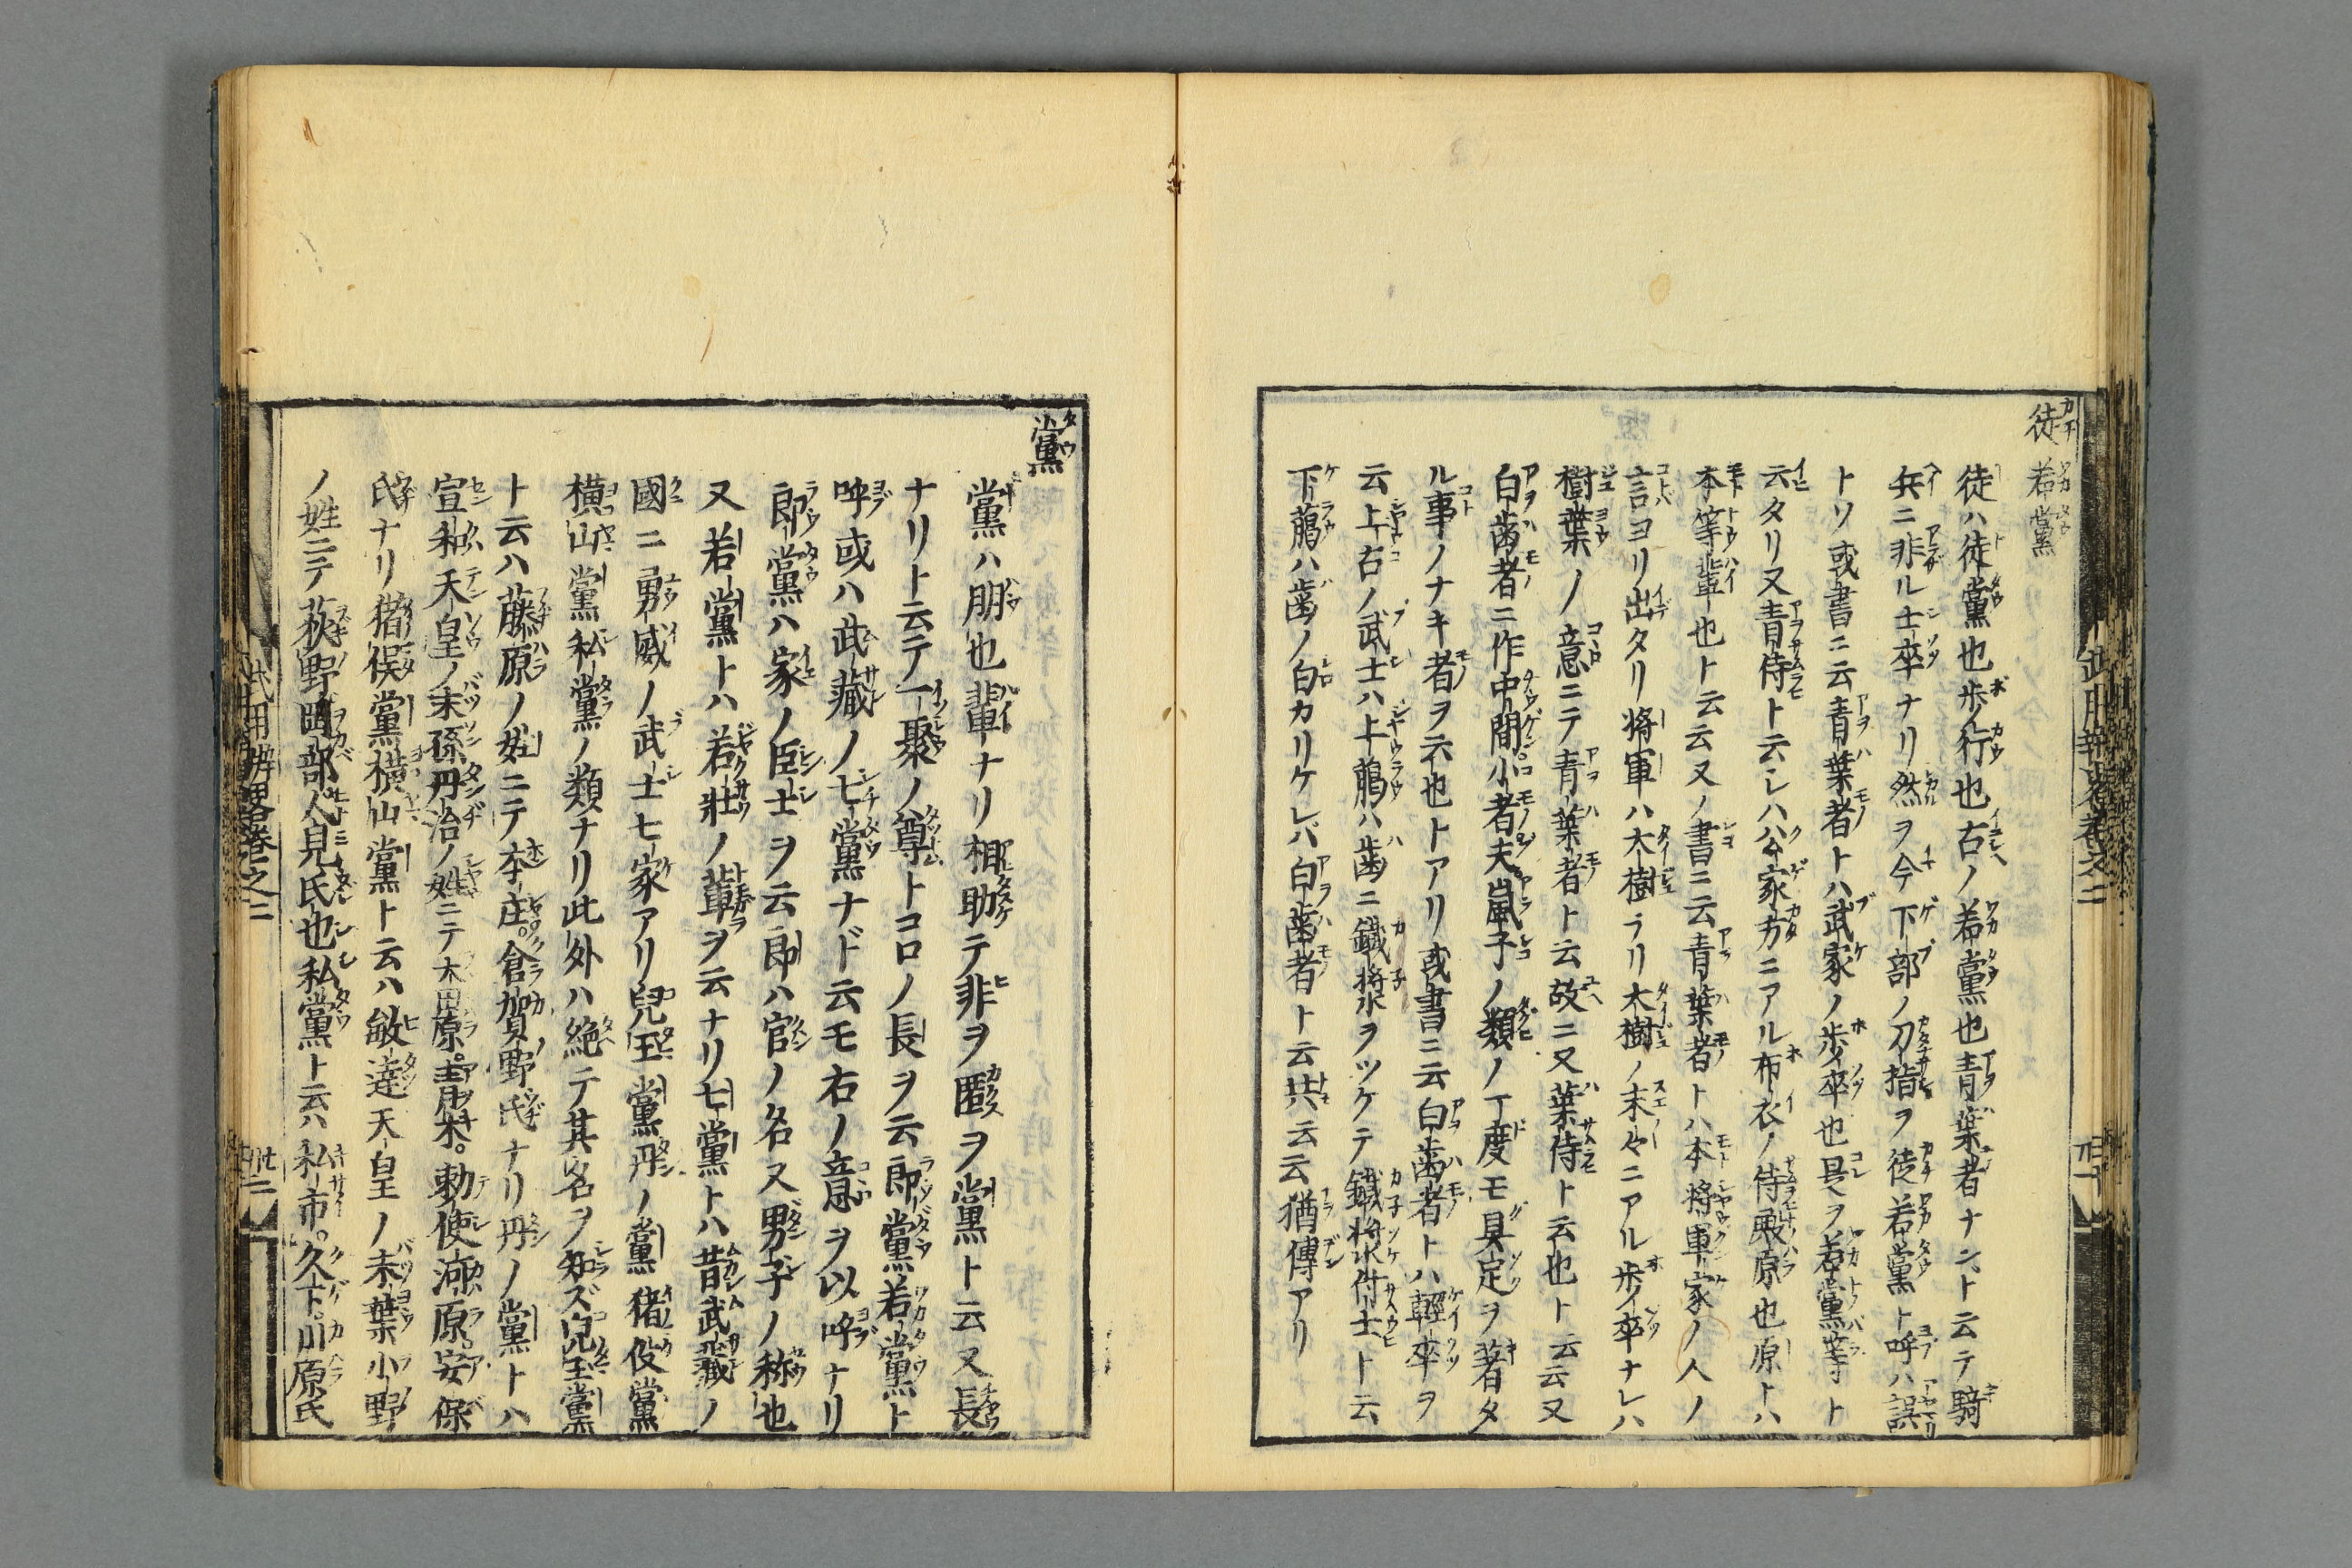 徒 若黨
徒ハ徒黨也歩行也古ノ若黨也青葉者ナント云テ騎
兵ニ非ル士卒ナリ然ヲ今下部ノ刀指ヲ徒若黨ト呼ハ誤
トソ或書ニ云青葉者トハ武家ノ歩卒也是ヲ若黨等ト
云タリ又青侍ト云シハ公家方ニアル布衣ノ侍殿原也原トハ
本等輩也ト云云又ノ書ニ云青葉者トハ本將軍家ノ人ノ
言ヨリ出タリ將軍ハ大樹ナリ大樹ノ末々ニアル歩卒ナレハ
樹葉ノ意ニテ青葉者ト云故ニ又葉侍ト云也ト云云又
白歯者ニ作中間小者夫嵐子ノ類ノ丁度モ具定ヲ著タ
ル事ノナキ者ヲ云也トアリ或書ニ云白歯者トハ輕卒ヲ
云上古ノ武士ハ上﨟ハ歯ニ鐵漿ヲツケテ鐵漿付士ト云
下﨟ハ歯ノ白カリケレバ白歯者ト云共云云猶傳アリ
黨
黨ハ朋也輩ナリ相助テ非ヲ匿ヲ黨ト云又長
ナリト云テ一聚ノ尊トコロノ長ヲ云郎黨若黨ト
呼或ハ武藏ノ七黨ナド云モ右ノ意ヲ以呼ナリ
郎黨ハ家ノ臣士ヲ云郎ハ官ノ名又男子ノ称也
又若黨トハ若壯ノ輩ヲ云ナリ七黨トハ昔武藏ノ
國ニ勇威ノ武士七家アリ兒玉黨丹ノ黨猪俣黨
横山黨私黨ノ類ナリ此外ハ絶テ其名ヲ知ズ兒玉黨
ト云ハ藤原ノ姓ニテ本庄。倉賀野氏ナリ丹ノ黨トハ
宣和天皇ノ末孫丹治ノ姓ニテ大田原。青木。勅使河原。安保
氏ナリ猪俣黨横山黨ト云ハ敏達天皇ノ末葉小野
ノ姓ニテ荻野岡部人見氏也私黨ト云ハ私市。久下。川原氏
武用辨略巻之二
武用辨略巻之二